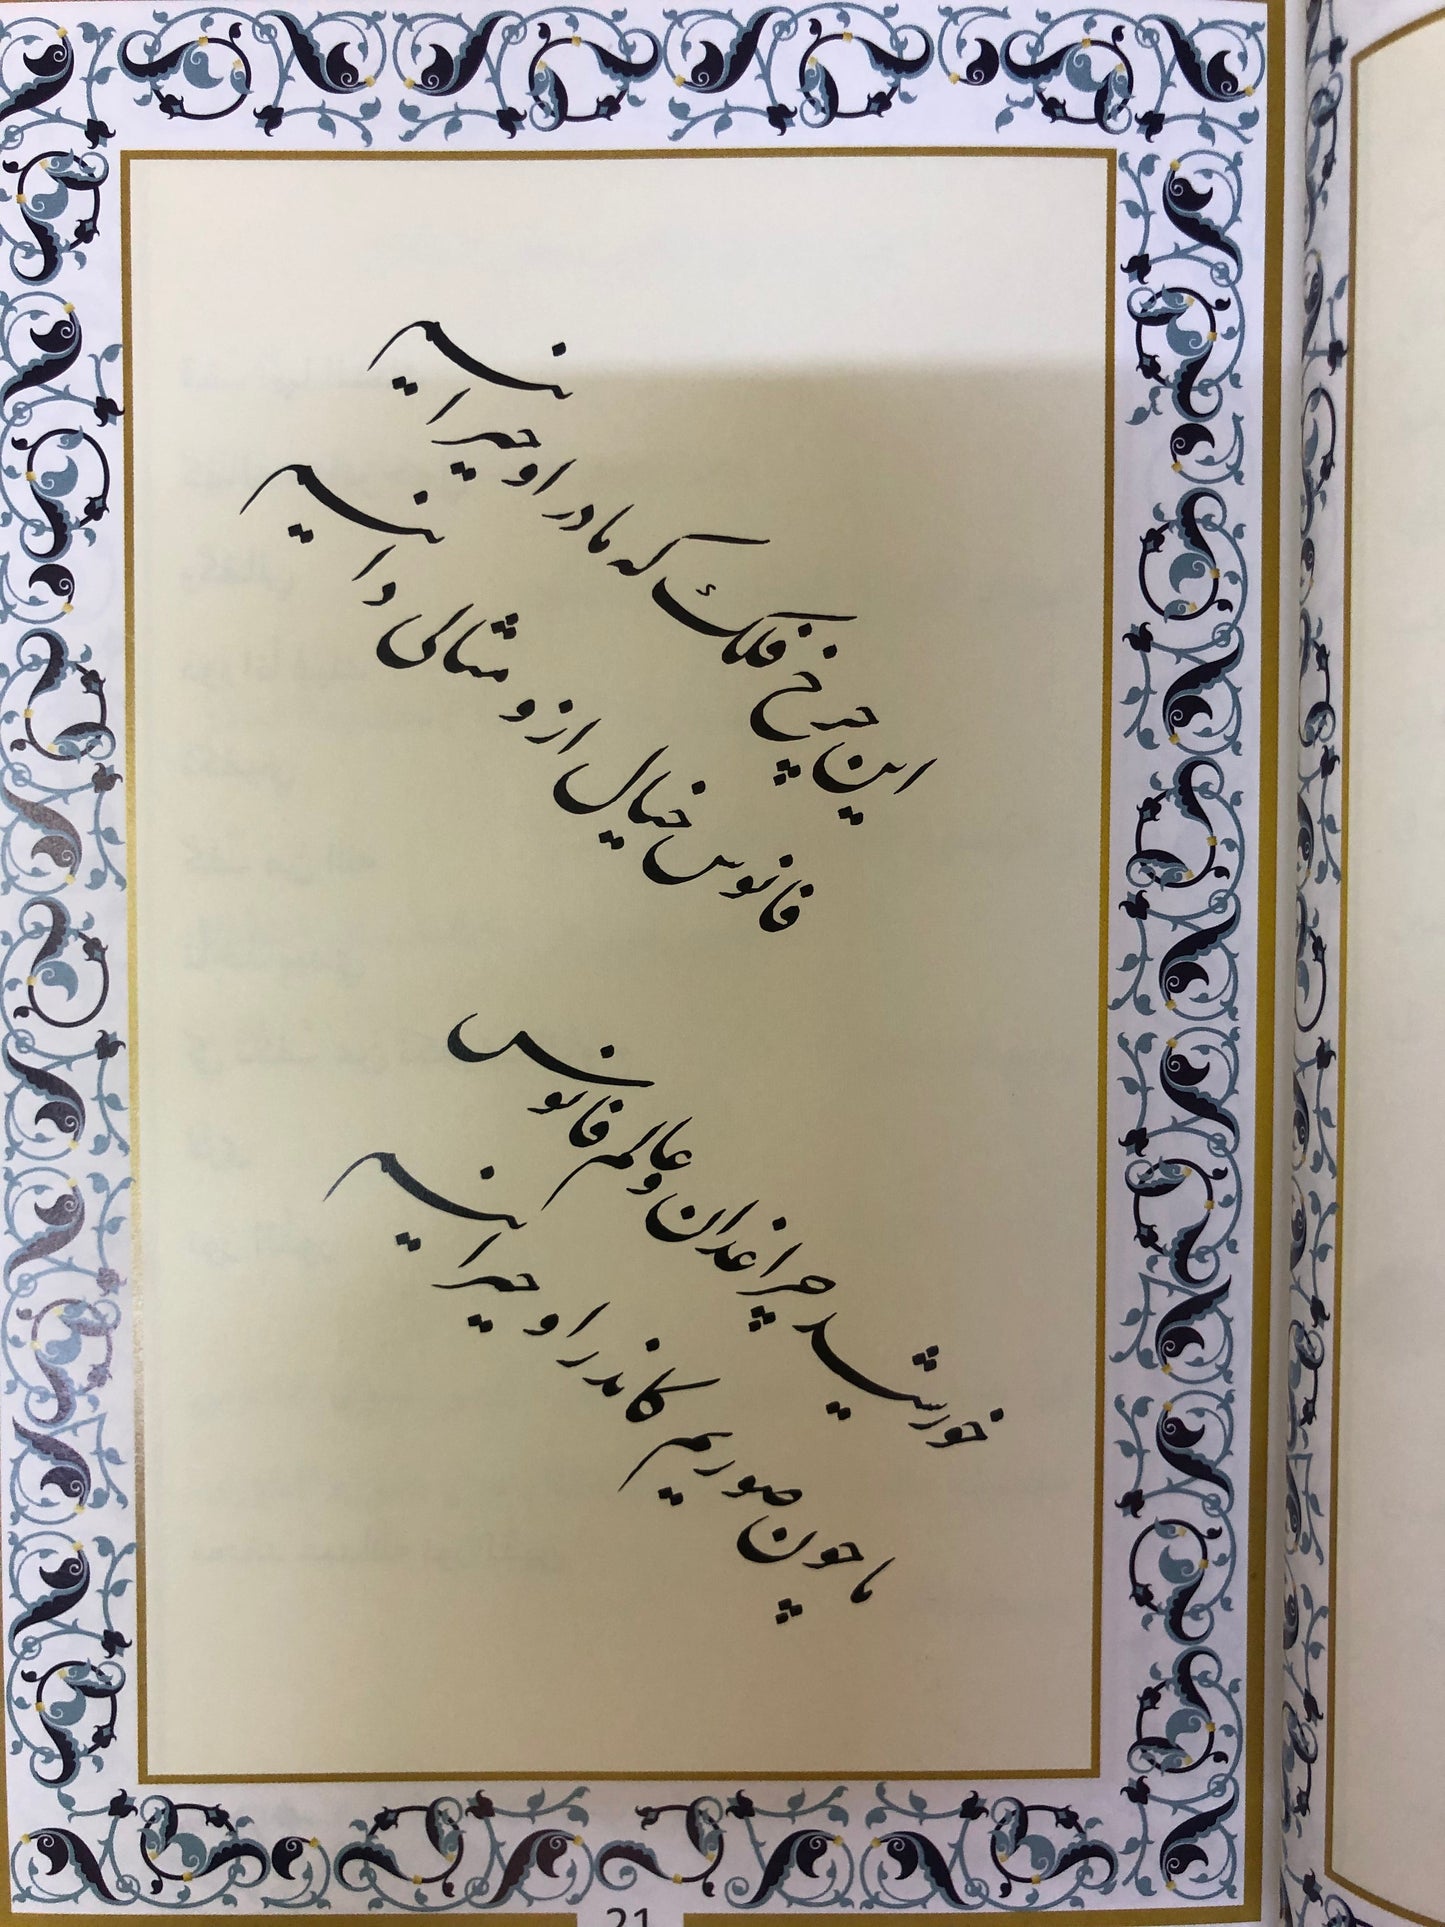 این چرخ فلک که ما در او حیرانیم
فانوس خیال از و مثالی دانیم
خورشید چراغدان و عالم فانوس
ما چون صوریم کاندر او حیرانیم
21